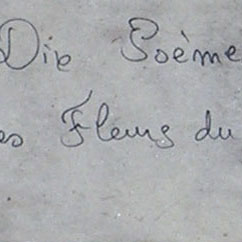 Dix Poème
es Fleurs du